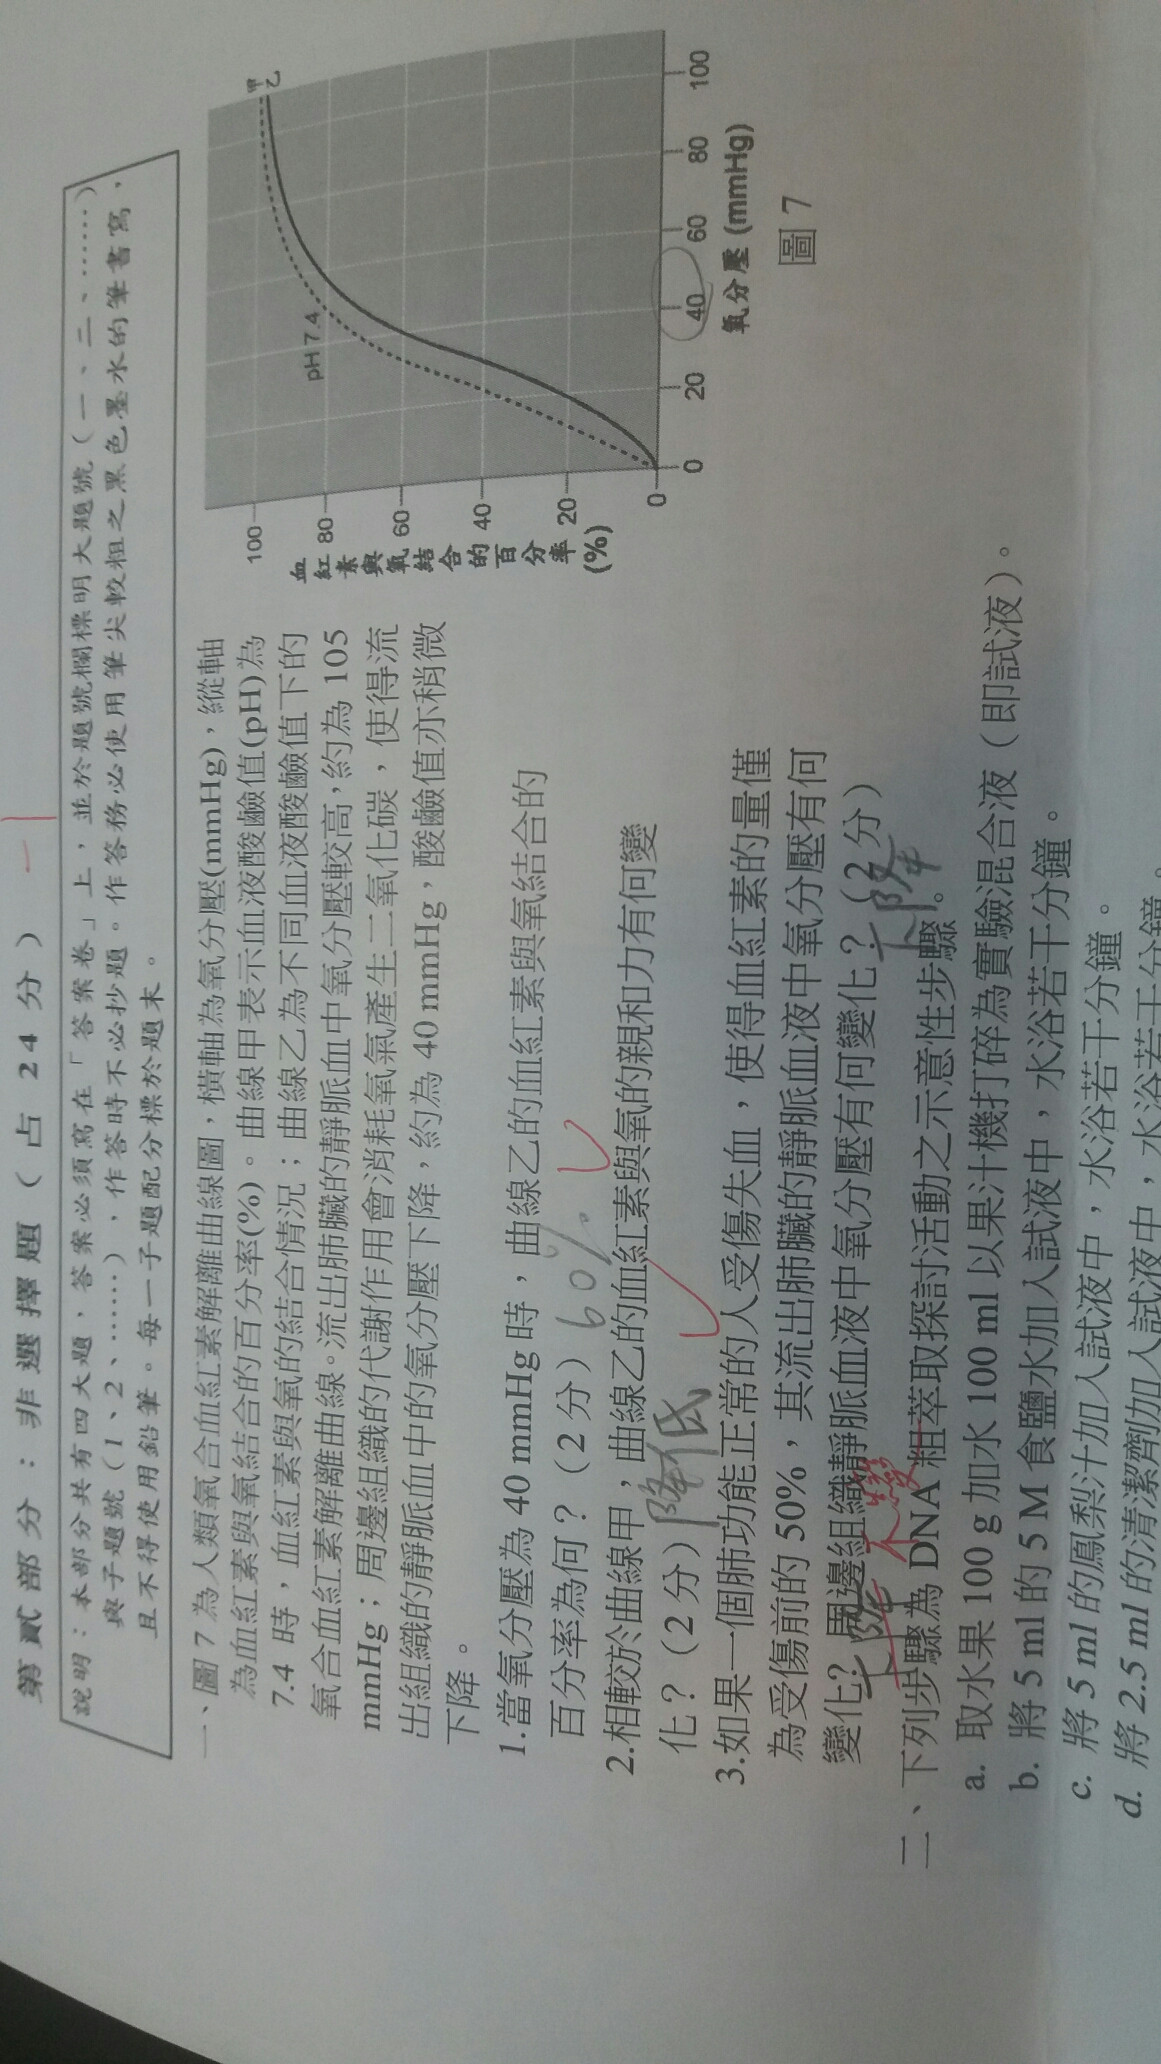 第貳部分：非選擇題（占24分）
說明：本部分共有四大題，答案必須寫在「答案卷」上，並於題號欄標明大題號（一、二、……）
與子題號（1、2、……），作答時不必抄題。作答務必使用筆尖較粗之黑色墨水的筆書寫，
且不得使用鉛筆。每一子題配分標於題末。
一、圖7為人類氧合血紅素解離曲線圖，橫軸為氧分壓(mmHg)，縱軸
為血紅素與氧結合的百分率(%)。曲線甲表示血液酸鹼值(pH)為
7.4時，血紅素與氧的結合情況；曲線乙為不同血液酸鹼值下的
氧合血紅素解離曲線。流出肺臟的靜脈血中氧分壓較高，約為105
mmHg；周邊組織的代謝作用會消耗氧氣產生二氧化碳，使得流
出組織的靜脈血中的氧分壓下降，約為40 mmHg，酸鹼值亦稍微
下降。
1.當氧分壓為40 mmHg時，曲線乙的血紅素與氧結合的
百分率為何？（2分）60%
2.相較於曲線甲，曲線乙的血紅素與氧的親和力有何變
化？（2分）降低
3.如果一個肺功能正常的人受傷失血，使得血紅素的量僅
為受傷前的50%，其流出肺臟的靜脈血液中氧分壓有何
變化？周邊組織靜脈血液中氧分壓有何變化？（2分）
下降 不變 下降
血紅素與氧結合的百分率
(%)
100
80
60
40
20
0
pH 7.4
甲
乙
0 20 40 60 80 100
氧分壓 (mmHg)
圖 7
二、下列步驟為DNA粗萃取探討活動之示意性步驟。
a. 取水果100 g加水100 ml以果汁機打碎為實驗混合液（即試液）。
b. 將5 ml的5 M食鹽水加入試液中，水浴若干分鐘。
c. 將5 ml的鳳梨汁加入試液中，水浴若干分鐘。
d. 將2.5 ml的清潔劑加入試液中，水浴若干分鐘。